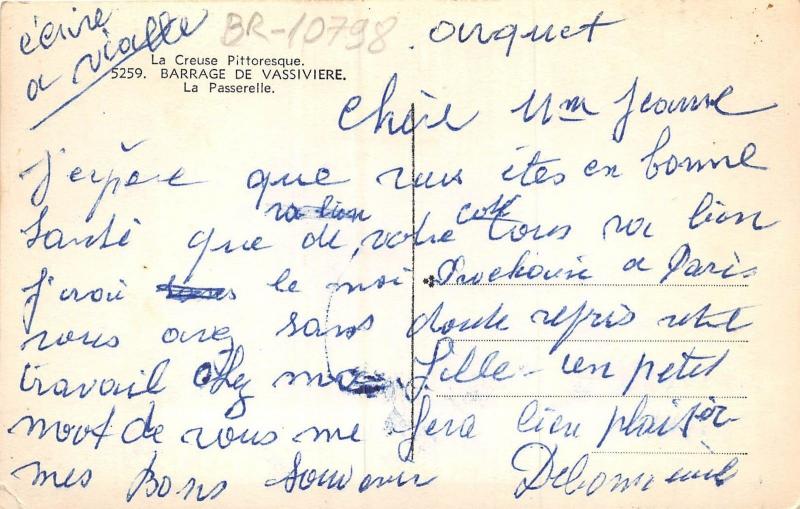 écrire
a vialle
BR-10798
arquet
La Creuse Pittoresque.
5259. BARRAGE DE VASSIVIERE.
La Passerelle.
Chère Mm Jeanne
J'espère que vous êtes en bonne
santé que de votre coté tous va bien
J'irai le moi Prochain a Paris
vous avez sans doute repris votre
travail chez ma fille - un petit
moot de vous me fera bien plaisir
mes Bons Souvenir